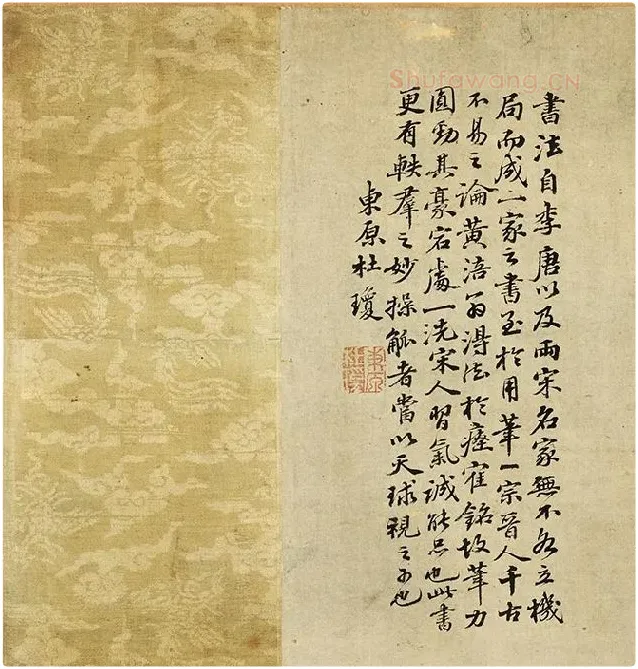 Shufawang.CN
書法自李唐以及兩宋名家無不各立機
局而成一家之書至於用筆一宗晉人千古
不易之論黃涪翁得法於瘞寉銘故筆力
圓勁其豪宕處一洗宋人習氣誠能品也此書
更有軼羣之妙操觚者當以天球視之可也
東原杜瓊